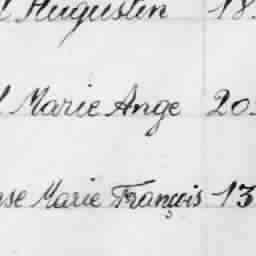 Augustin 18
Marie Ange 20
se Marie François 13